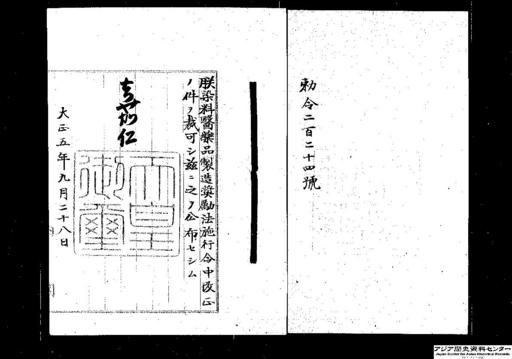 勅令二百二十四號
朕染料醫藥品製造奬勵法施行令中改正
ノ件ヲ裁可シ茲ニ之ヲ公布セシム
嘉仁
天皇御璽
大正五年九月二十八日
アジア歴史資料センター
Japan Center for Asian Historical Records